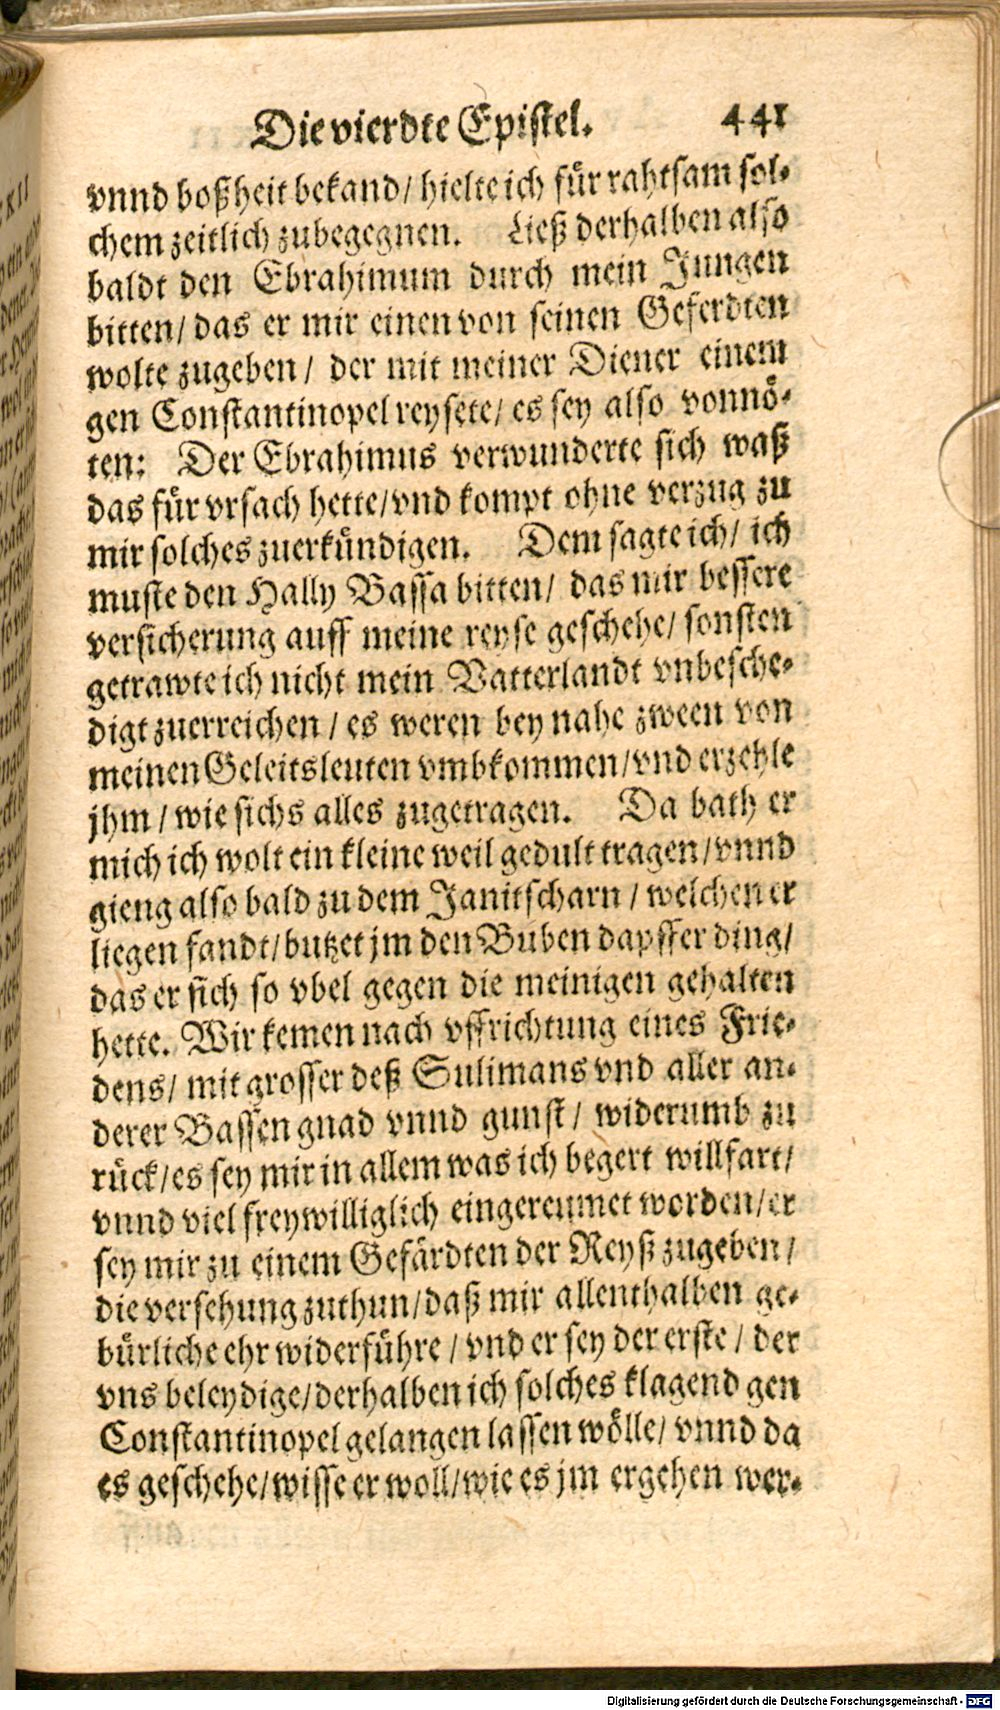 Die vierdte Epistel. 441
vnnd boßheit bekand/ hielte ich für rahtsam sol-
chem zeitlich zubegegnen. Ließ derhalben also
baldt den Ebrahimum durch mein Jungen
bitten/ das er mir einen von seinen Geferdten
wolte zugeben/ der mit meiner Diener einem
gen Constantinopel reysete/ es sey also vonnö-
ten: Der Ebrahimus verwunderte sich waß
das für vrsach hette/vnd kompt ohne verzug zu
mir solches zuerkündigen. Dem sagte ich/ ich
muste den Hally Bassa bitten/ das mir bessere
versicherung auff meine reyse geschehe/ sonsten
getrawte ich nicht mein Vatterlandt vnbesche-
digt zuerreichen/ es weren bey nahe zween von
meinen Geleitsleuten vmbkommen/vnd erzehle
jhm/ wie sichs alles zugetragen. Da bath er
mich ich wolt ein kleine weil gedult tragen/vnnd
gieng also bald zu dem Janitscharn/ welchen er
liegen fandt/butzet jm den Buben dapffer ding/
das er sich so vbel gegen die meinigen gehalten
hette. Wir kemen nach vffrichtung eines Frie-
dens/ mit grosser deß Sulimans vnd aller an-
derer Bassen gnad vnnd gunst/ widerumb zu
rück/es sey mir in allem was ich begert willfart/
vnnd viel freywilliglich eingereumet worden/er
sey mir zu einem Gefärdten der Reyß zugeben/
die versehung zuthun/daß mir allenthalben ge-
bürliche ehr widerführe/ vnd er sey der erste/ der
vns beleydige/derhalben ich solches klagend gen
Constantinopel gelangen lassen wölle/ vnnd da
es geschehe/wisse er woll/wie es jm ergehen wer-
Digitalisierung gefördert durch die Deutsche Forschungsgemeinschaft - DFG